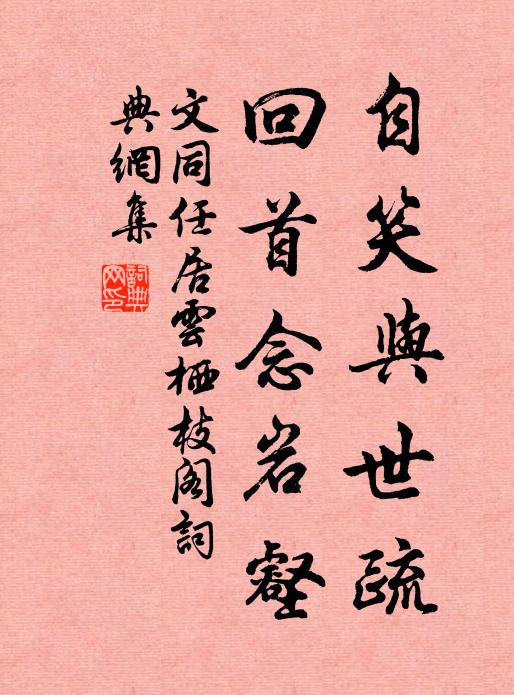 自笑與世疏
回首念岩壑
文同任居雲栖枝阁詞
典網集
詞典網印